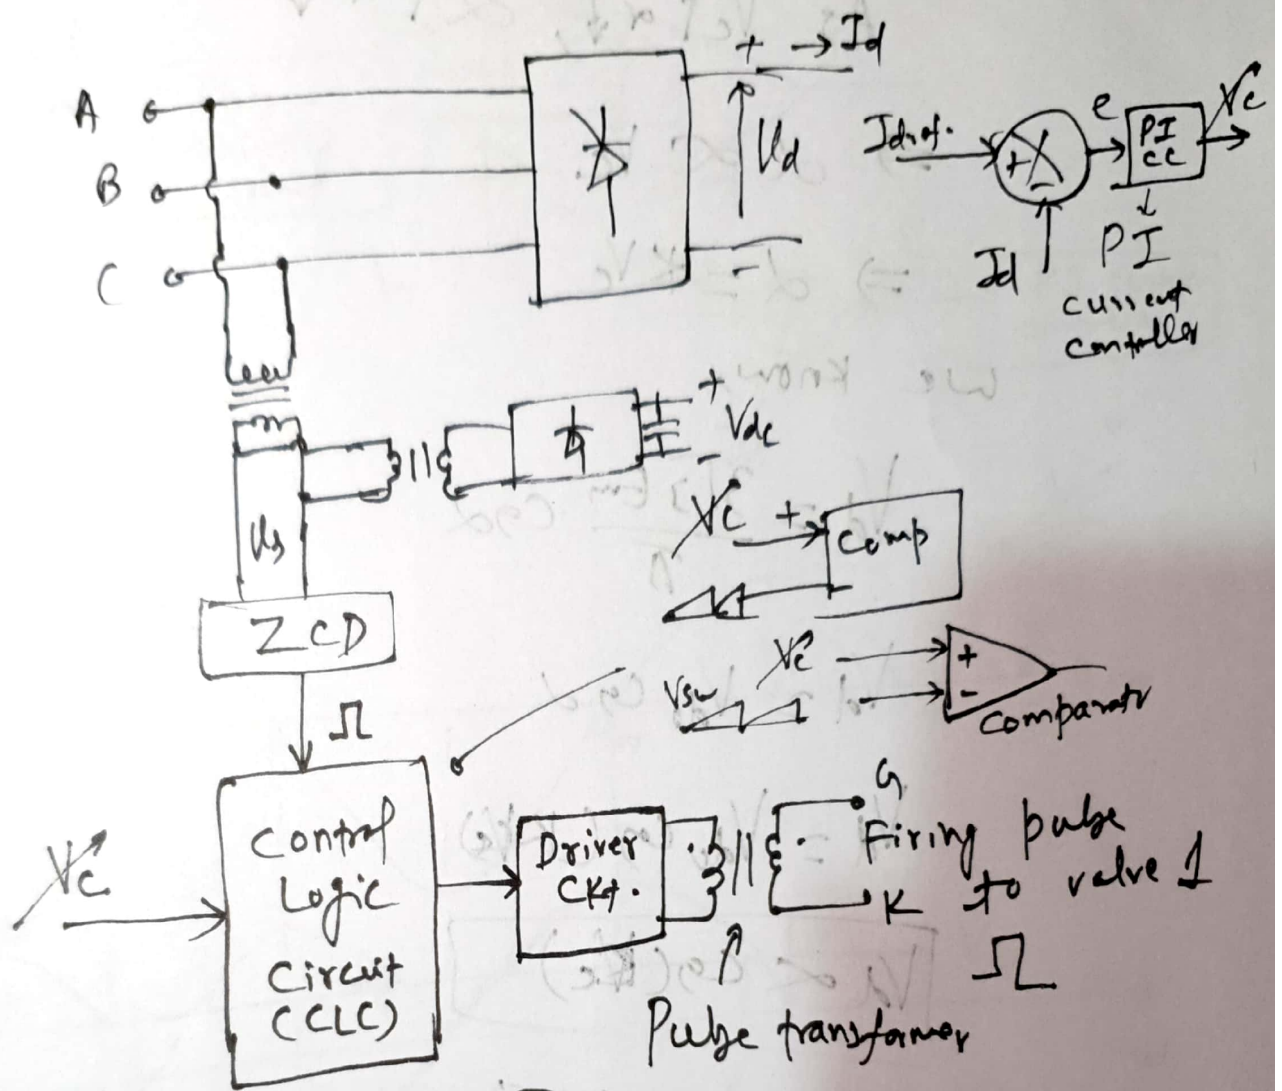 A
B
C
+ → Id
Vd
-
Idref.
+
-
e
PI
CC
Vc
Id
PI
current
controller
+
Vdc
-
Vs
ZCD
Vc +
Comp
-
Vc
Vsw
+
-
Comparator
Control
Logic
Circuit
(CLC)
Vc
Driver
Ckt.
G
Firing pulse
K to valve 1
Pulse transformer